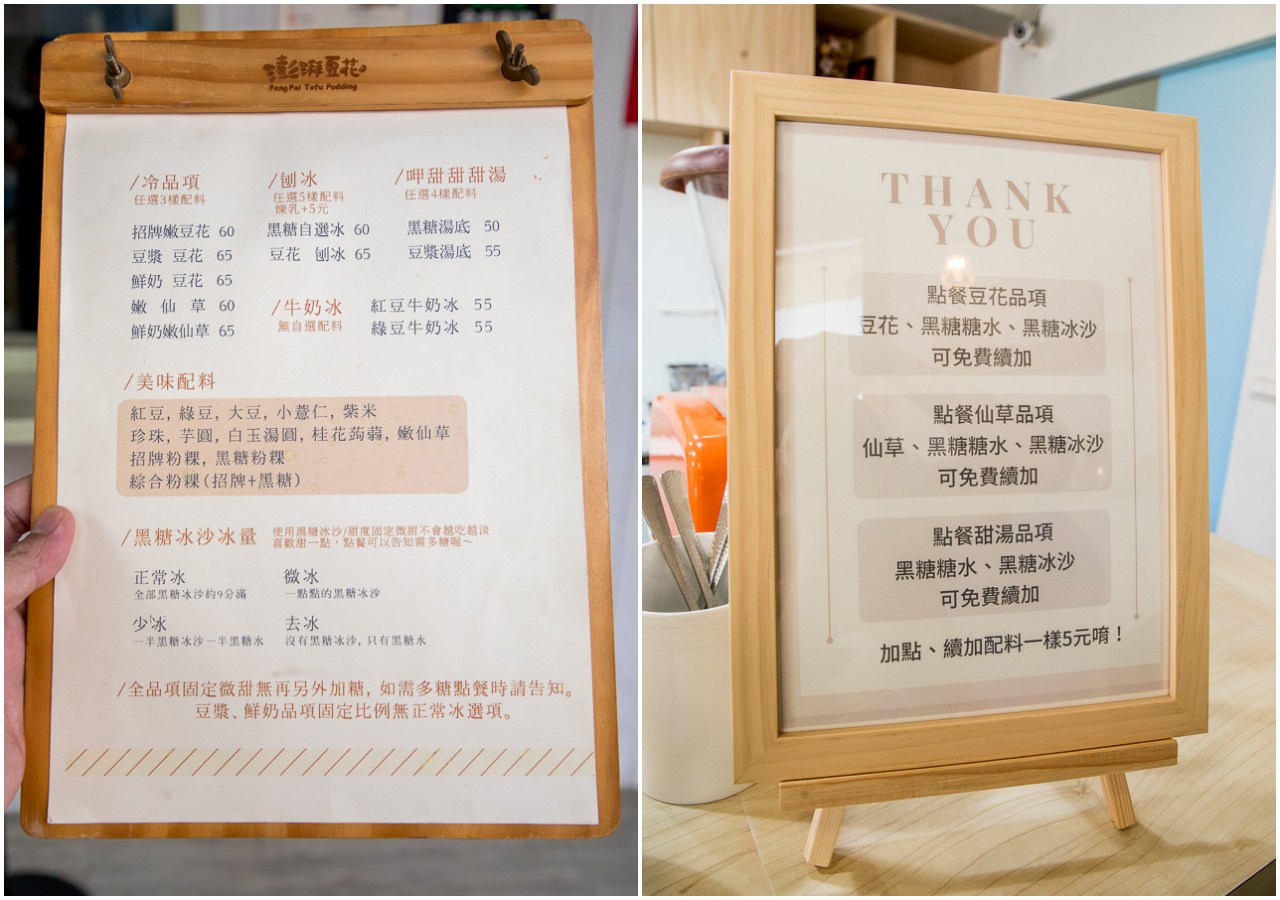 澎湃豆花
Peng Pai Tofu Pudding
/冷品項
任選3樣配料
招牌嫩豆花 60
豆漿 豆花 65
鮮奶 豆花 65
嫩 仙 草 60
鮮奶嫩仙草 65
/刨冰
任選5樣配料
煉乳+5元
黑糖自選冰 60
豆花 刨冰 65
/呷甜甜甜湯
任選4樣配料
黑糖湯底 50
豆漿湯底 55
/牛奶冰
無自選配料
紅豆牛奶冰 55
綠豆牛奶冰 55
/美味配料
紅豆, 綠豆, 大豆, 小薏仁, 紫米
珍珠, 芋圓, 白玉湯圓, 桂花蒟蒻, 嫩仙草
招牌粉粿, 黑糖粉粿
綜合粉粿(招牌+黑糖)
/黑糖冰沙冰量
使用黑糖冰沙/甜度固定微甜不會越吃越淡
喜歡甜一點，點餐可以告知需多糖喔～
正常冰
全部黑糖冰沙約9分滿
微冰
一點點的黑糖冰沙
少冰
一半黑糖冰沙一半黑糖水
去冰
沒有黑糖冰沙, 只有黑糖水
/全品項固定微甜無再另外加糖, 如需多糖點餐時請告知。
豆漿、鮮奶品項固定比例無正常冰選項。
THANK
YOU
點餐豆花品項
豆花、黑糖糖水、黑糖冰沙
可免費續加
點餐仙草品項
仙草、黑糖糖水、黑糖冰沙
可免費續加
點餐甜湯品項
黑糖糖水、黑糖冰沙
可免費續加
加點、續加配料一樣5元唷！